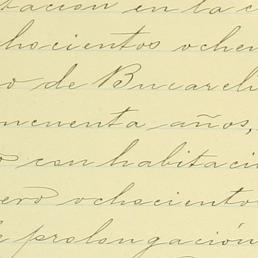 tación en la c
chocientos ochen
o de Bucareli
incuenta años,
o con habitació
ero ochocientos
de prolongación